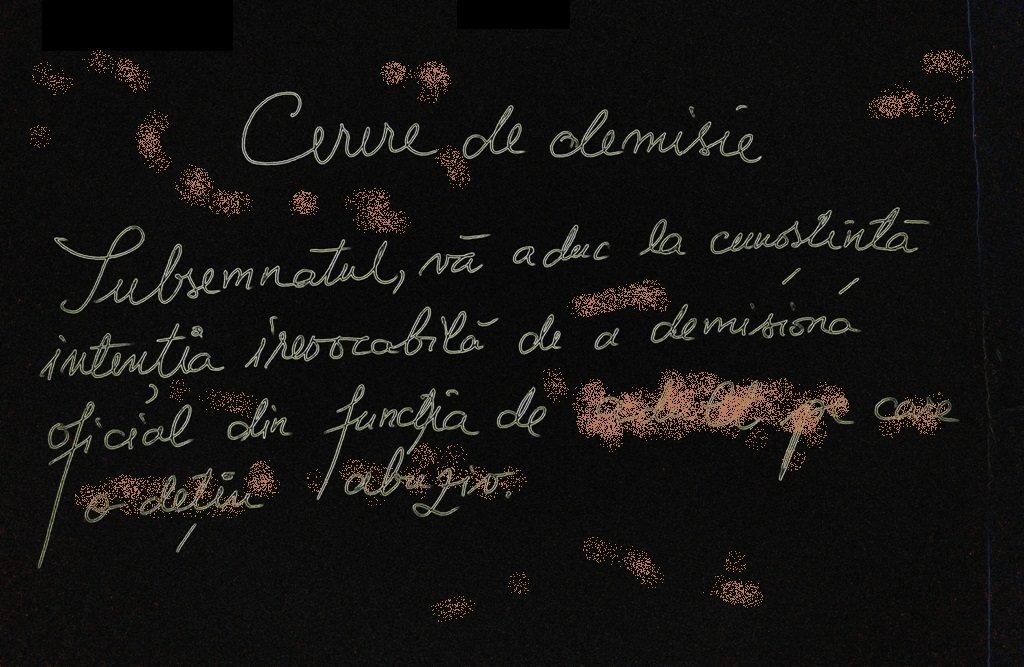 Cerere de demisie
Subsemnatul, vă aduc la cunoștință
intenția irevocabilă de a demisiona
oficial din funcția de adult pe care
o dețin abuziv.